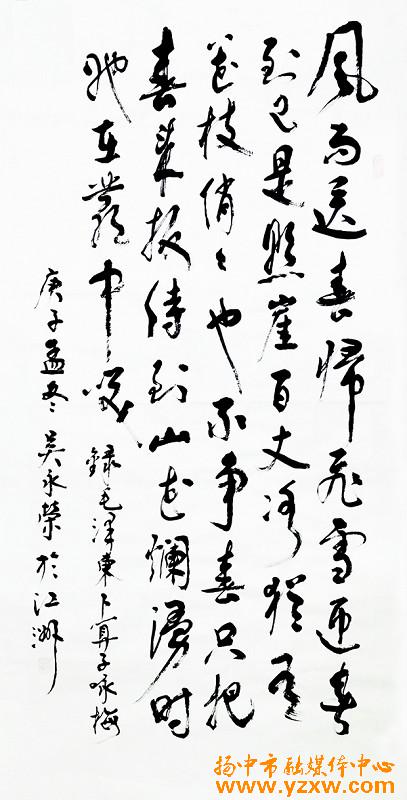 風雨送春歸飛雪迎春
到已是懸崖百丈冰猶有
花枝俏〻也不爭春只把
春來報待到山花爛漫时
她在叢中笑 錄毛澤東卜算子咏梅
庚子孟冬 吴永榮於江洲
扬中市融媒体中心
www.yzxw.com